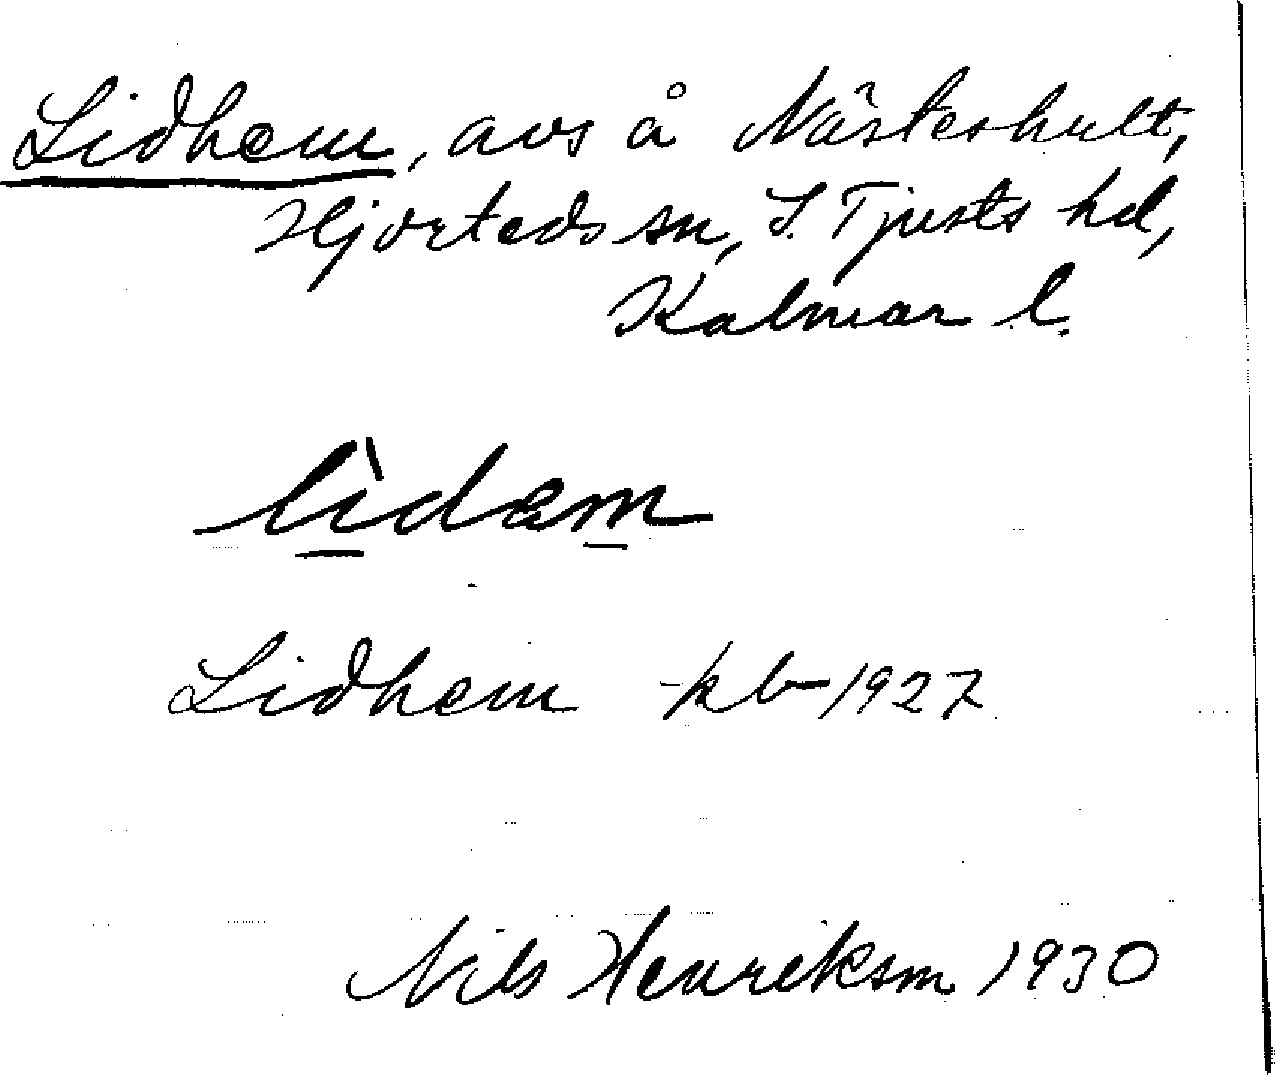 Lidhem, avs å Näs­teshult,
Hjorteds sn, S. Tjusts hd,
Kalmar l.
lìdəm
Lidhem kb 1927
Nils Henriksson 1930